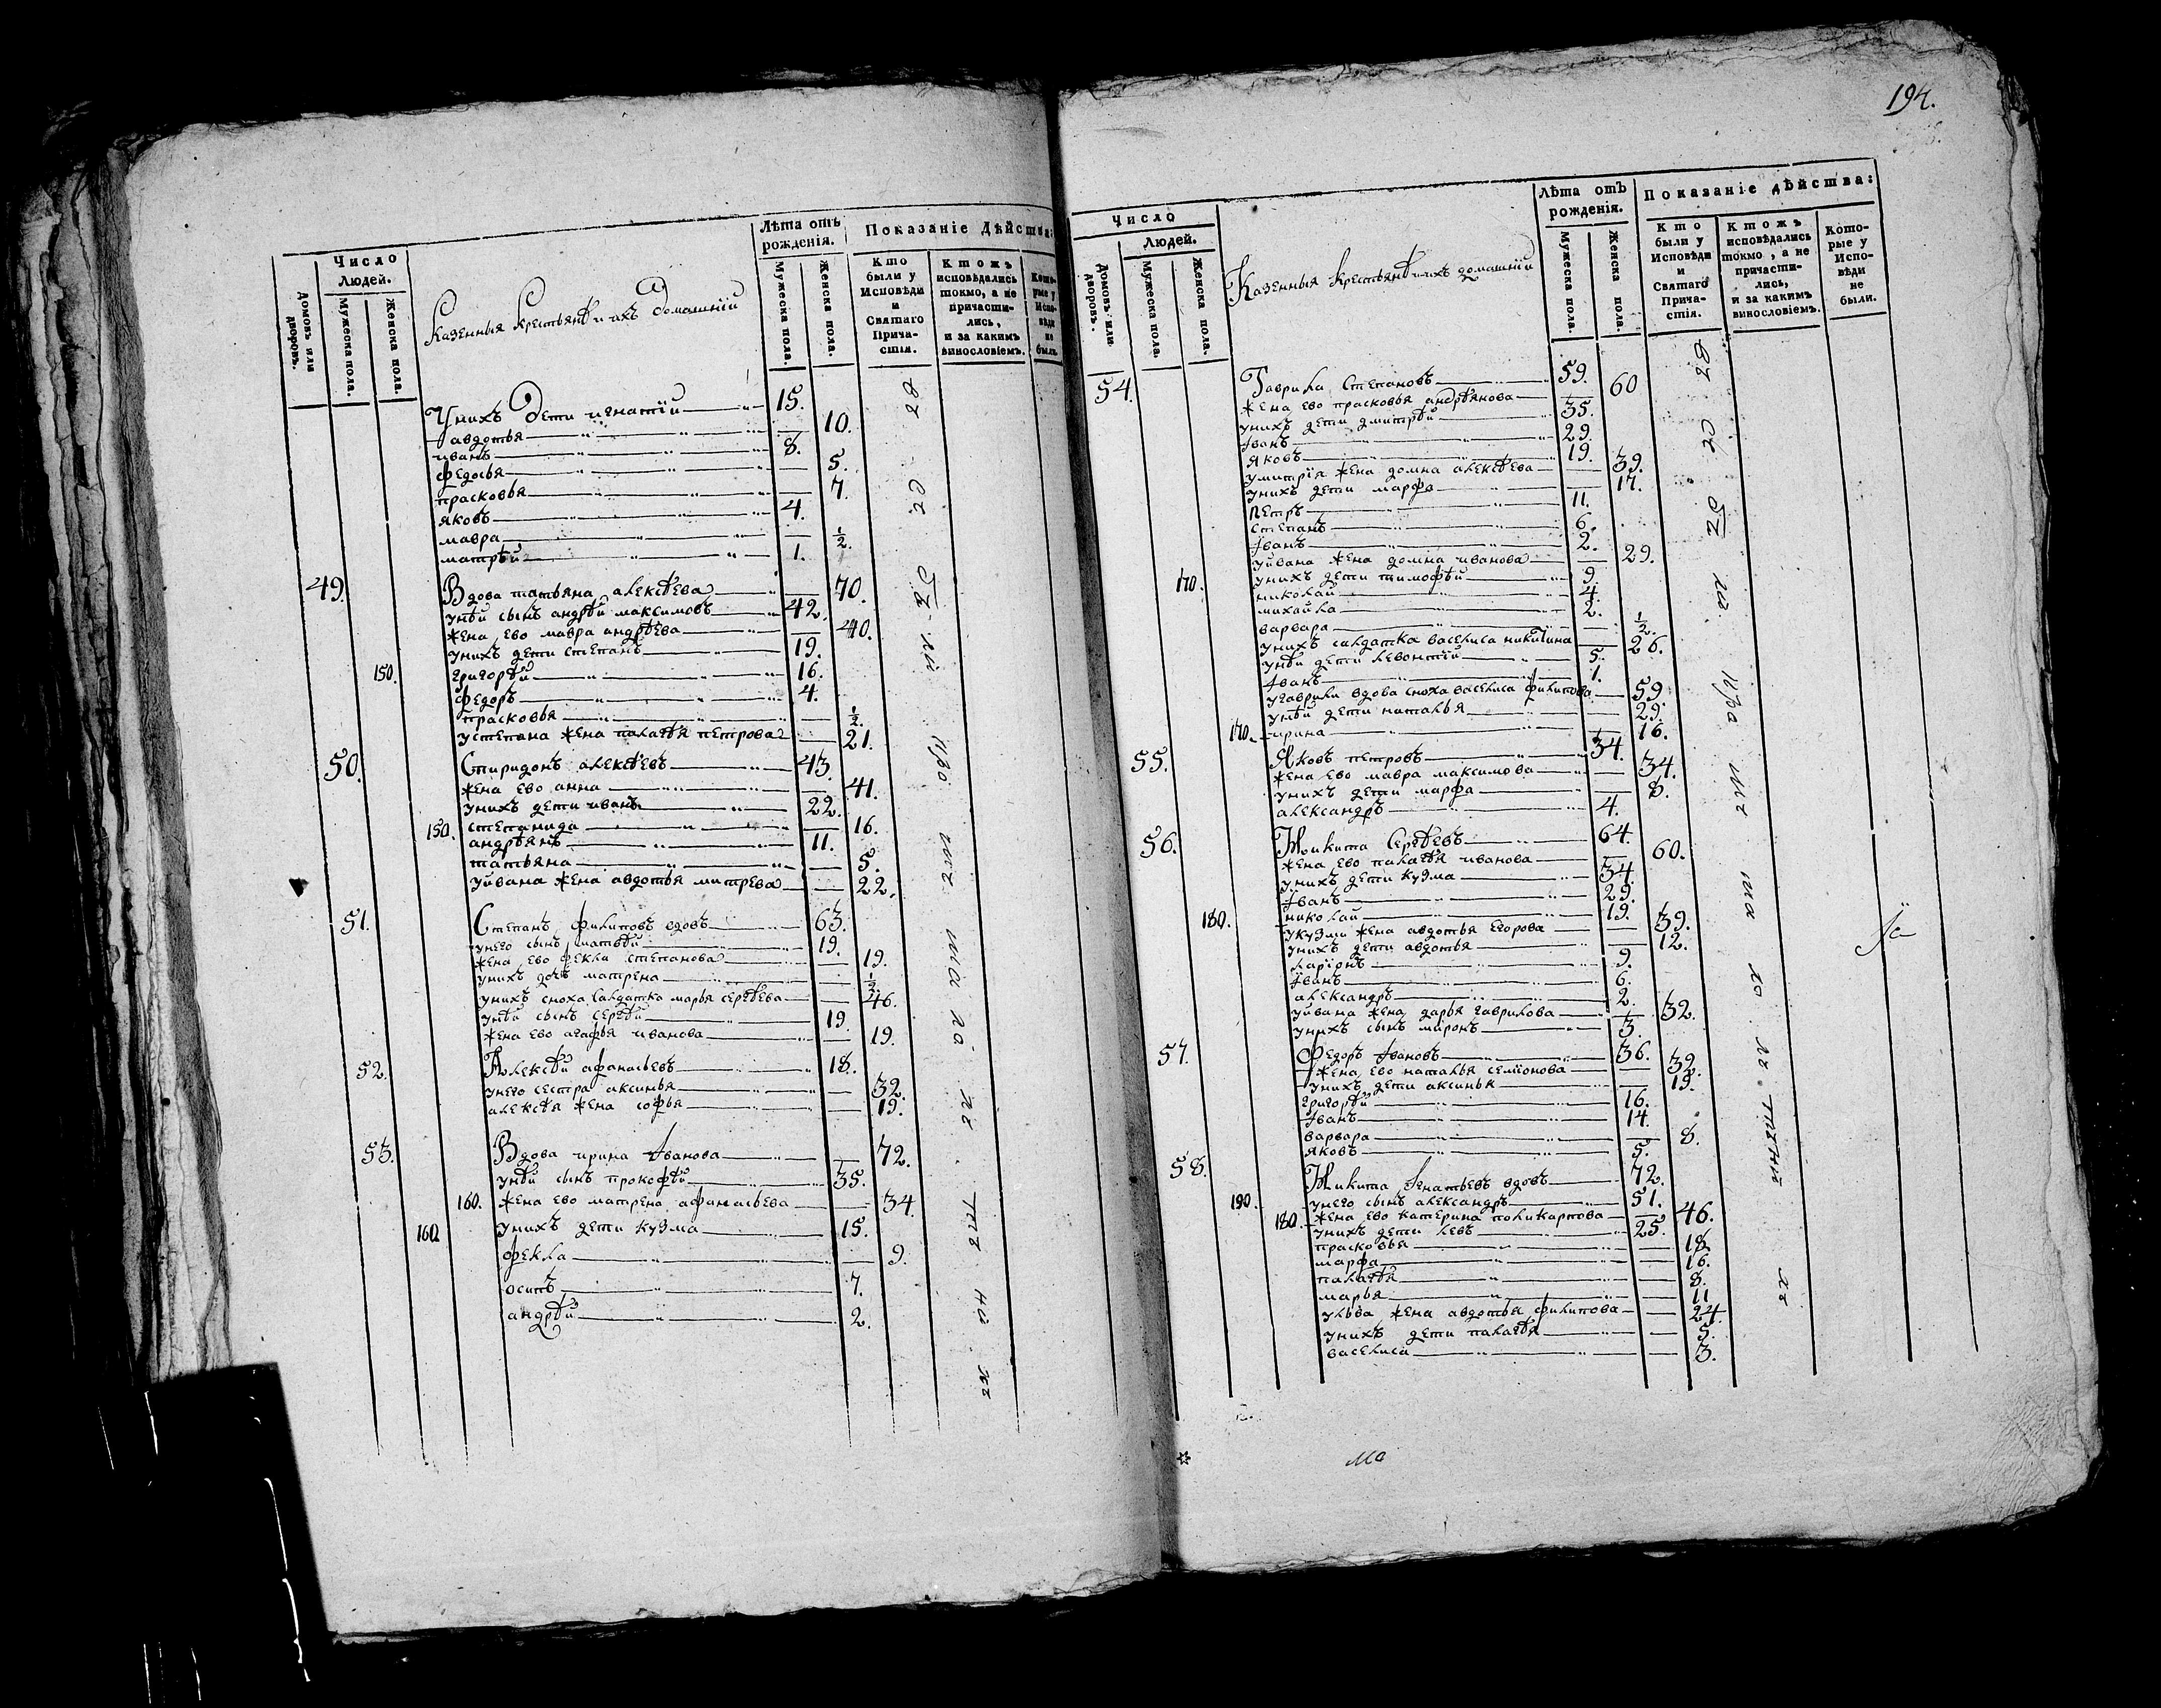 194.
Число
Людей.
Домовъ или дворовъ.
Мужеска пола.
Женска пола.
Казенныя крестьянѣ и ихъ Домашнїи
Лѣта отъ рожденія.
Мужеска пола.
Женска пола.
Показаніе Дѣйства:
Кто были у Исповѣди и Святаго Причастія.
Ктожъ исповѣдались токмо, а не причастились, и за какимъ винословіемъ.
Которые у Исповѣди не были.
Унихъ Дети игнатїи 15.
авдотья 10.
иванъ 8.
федосья 5.
прасковья 7.
яковъ 4.
мавра ½.
матвѣй 1.
49. Вдова татьяна алексѣева 70.
унѣй сынъ андрѣй максимовъ 42.
жена ево мавра андрѣева 40.
унихъ дети степанъ 19.
150. григорѣй 16.
федоръ 4.
прасковья ½.
устепана жена палагѣя петрова 21.
50. Спиридонъ алексѣевъ 43.
жена ево анна 41.
унихъ дети иванъ 22.
150. степанида 16.
андрѣянъ 11.
татьяна 5.
уйвана жена авдотья митрева 22.
51. Степанъ филиповъ вдовъ 63.
унего сынъ матвѣй 19.
жена ево фекла степанова 19.
унихъ дочь матрена ½.
унихъ сноха салдатка марья сергѣева 46.
унѣй сынъ сергѣй 19.
жена ево агафья иванова 19.
52. Алексѣй афанасьевъ 18.
унего сестра аксинья 32.
алексѣя жена софья 19.
53. Вдова ирина Іванова 72.
унѣй сынъ прокофѣй 35.
160. жена ево матрена афанасьева 34.
160. унихъ дети кузма 15.
фекла 9.
осипъ 7.
андрѣй 2.
Число
Людей.
Домовъ или дворовъ.
Мужеска пола.
Женска пола.
Казенныя крестьянѣ и ихъ домашнїи
Лѣта отъ рожденія.
Мужеска пола.
Женска пола.
Показаніе дѣйства:
Кто были у Исповѣди и Святаго Причастія.
Ктожъ исповѣдались токмо, а не причастились, и за какимъ винословіемъ.
Которые у Исповѣди не были.
54. Гаврила Степановъ 59.
жена ево прасковья андрѣянова 60
унихъ дети дмитрѣй 35.
Іванъ 29.
яковъ 19.
умитрїя жена домна алексѣева 39.
унихъ дети марфа 17.
петръ 11.
степанъ 6.
Іванъ 2.
уйвана жена домна иванова 29.
170. унихъ дети тимофѣй 9.
николай 4.
михайла 2.
варвара ½.
унихъ салдатка василиса никитина 26.
унѣй дети левонтїй 5.
Іванъ 1.
угаврилы вдова сноха василиса филипова 59.
унѣй дети наталья 29.
170. ирина 16.
55. Яковъ петровъ 34.
жена ево мавра максимова 34.
унихъ дети марфа 8.
александръ 4.
56. Никита Сергѣевъ 64.
жена ево палагѣя иванова 60.
унихъ дети кузма 34.
Іванъ 29.
180. николай 19.
укузмы жена авдотья Егорова 39.
унихъ дети авдотья 12.
ларїонъ 9.
Іванъ 6.
александръ 2.
уйвана жена дарья гаврилова 32.
унихъ сынъ миронъ 3.
57. Федоръ Івановъ 36.
жена ево наталья семїонова 39.
унихъ дети аксинья 19.
григорѣй 16.
Іванъ 14.
варвара 8.
яковъ 5.
58. Никита Ігнатьевъ вдовъ 72.
190. унего сынъ александръ 51.
180. жена ево катерина поликарпова 46.
унихъ дети левъ 25.
прасковья 18
марфа 16.
палагѣя 8.
марья 11
ульва жена авдотья филипова 24.
унихъ дети палагѣя 5.
василиса 3.